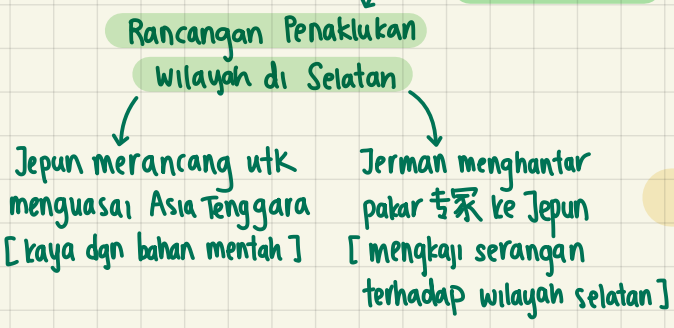 Rancangan Penaklukan
Wilayah di Selatan
Jepun merancang utk
menguasai Asia Tenggara
[kaya dgn bahan mentah]
Jerman menghantar
pakar 专家 ke Jepun
[mengkaji serangan
terhadap wilayah selatan]